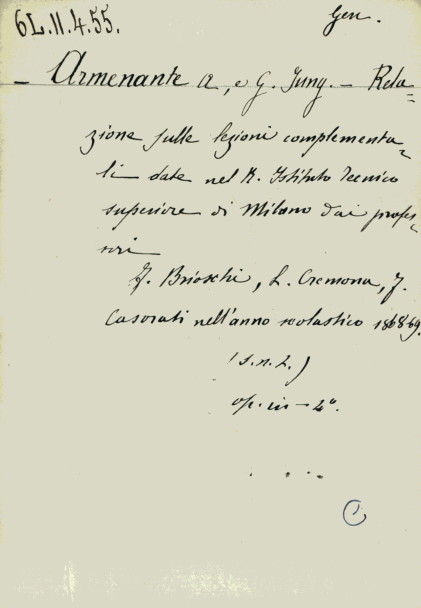 6L.II.4.55.
Gen.
- Armenante A., e G. Jung. - Rela=
zione sulle lezioni complementa=
li date nel R. Istituto Tecnico
superiore di Milano dai profes=
sori
F. Brioschi, L. Cremona, F.
Casorati nell'anno scolastico 1868-69.
(s.n.t.)
op. in-4°.
C